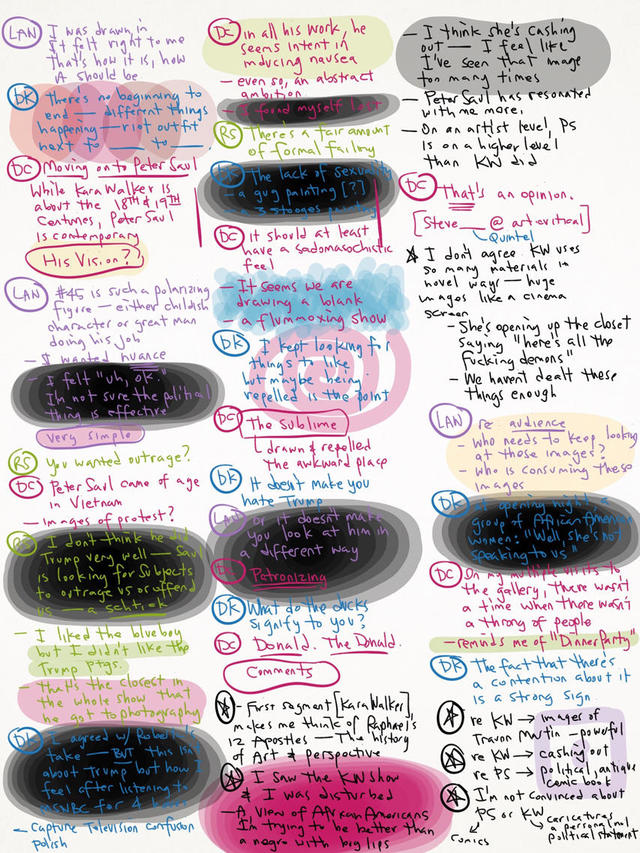 LAN I was drawn in
It felt right to me
that's how it is, how
it should be
DK There's no beginning to
end — different things
happening — riot outfit
next to ____ to ____
DC Moving on to Peter Saul
While Kara Walker is
about the 18TH & 19TH
Centuries, Peter Saul
is contemporary
His Vision?
LAN #45 is such a polarizing
figure — either childish
character or great man
doing his job
- I wanted nuance
- I felt "uh, ok."
I'm not sure the political
thing is effective
very simple
RS You wanted outrage?
DC Peter Saul came of age
in Vietnam
- Images of protest?
RS I don't think he did
Trump very well — Saul
is looking for subjects
to outrage us or offend
us — a schtick
- I liked the blueboy
but I didn't like the
Trump ptgs.
- that's the closest in
the whole show that
he got to photography
DK I agreed w/ Robert's
take — BUT this isn't
about Trump but how I
feel after listening to
MSNBC for 4 hours
- Capture Television confusion
polish
DC in all his work, he
seems intent in
inducing nausea
- even so, an abstract
ambition
- I found myself lost
RS There's a fair amount
of formal failing
DK The lack of sexuality
- a guy painting [?]
- a 3 stooges painting
DC it should at least
have a sadomasochistic
feel
- It seems we are
drawing a blank
- a flummoxing show
DK I kept looking for
things to like
but maybe being
repelled is the point
DC The Sublime
drawn & repelled
the awkward place
DK It doesn't make you
hate Trump
LAN Or it doesn't make
you look at him in
a different way
DC Patronizing
DK What do the ducks
signify to you?
DC Donald. The Donald.
Comments
- First segment [Kara Walker],
makes me think of Raphael's
12 Apostles — The history
of Art & perspective
I saw the KW show
& I was disturbed
- A view of African Americans
I'm trying to be better than
a negro with big lips
- I think she's cashing
out — I feel like
I've seen that image
too many times
- Peter Saul has resonated
with me more.
- On an artist level, PS
is on a higher level
than KW did
DC That's an opinion.
[Steve ____ @ artcritical]
Quintel
I don't agree. KW uses
so many materials in
novel ways — huge
images like a cinema
screen
- She's opening up the closet
saying "here's all the
fucking demons"
- We haven't dealt these
things enough
LAN re: audience
- Who needs to keep looking
at those images?
- Who is consuming these
images
DK At opening night a
group of African American
women: "Well, she's not
speaking to us"
DC On my multiple visits to
the gallery, there wasn't
a time when there wasn't
a throng of people
- reminds me of "Dinner Party"
DK The fact that there's
a contention about it
is a strong sign.
re KW → images of
Travon Martin - powerful
re KW → cashing out
re PS → political, antique
comic book
I'm not convinced about
PS or KW
comics
caricatures
a personal
political statement